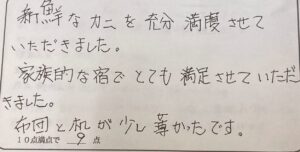 新鮮なカニを充分満喫させて
いただきました。
家族的な宿でとても満足させていただ
きました。
布団と机が少し薄かったです。
10点満点で 9 点